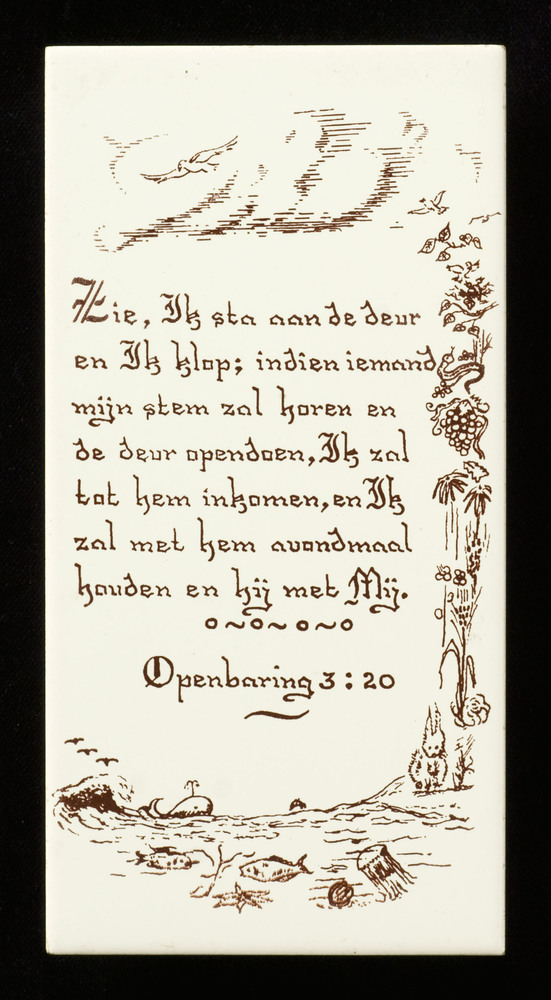 Zie, Ik sta aan de deur
en Ik klop; indien iemand
mijn stem zal horen en
de deur opendoen, Ik zal
tot hem inkomen, en Ik
zal met hem avondmaal
houden en hij met Mij.
Openbaring 3:20